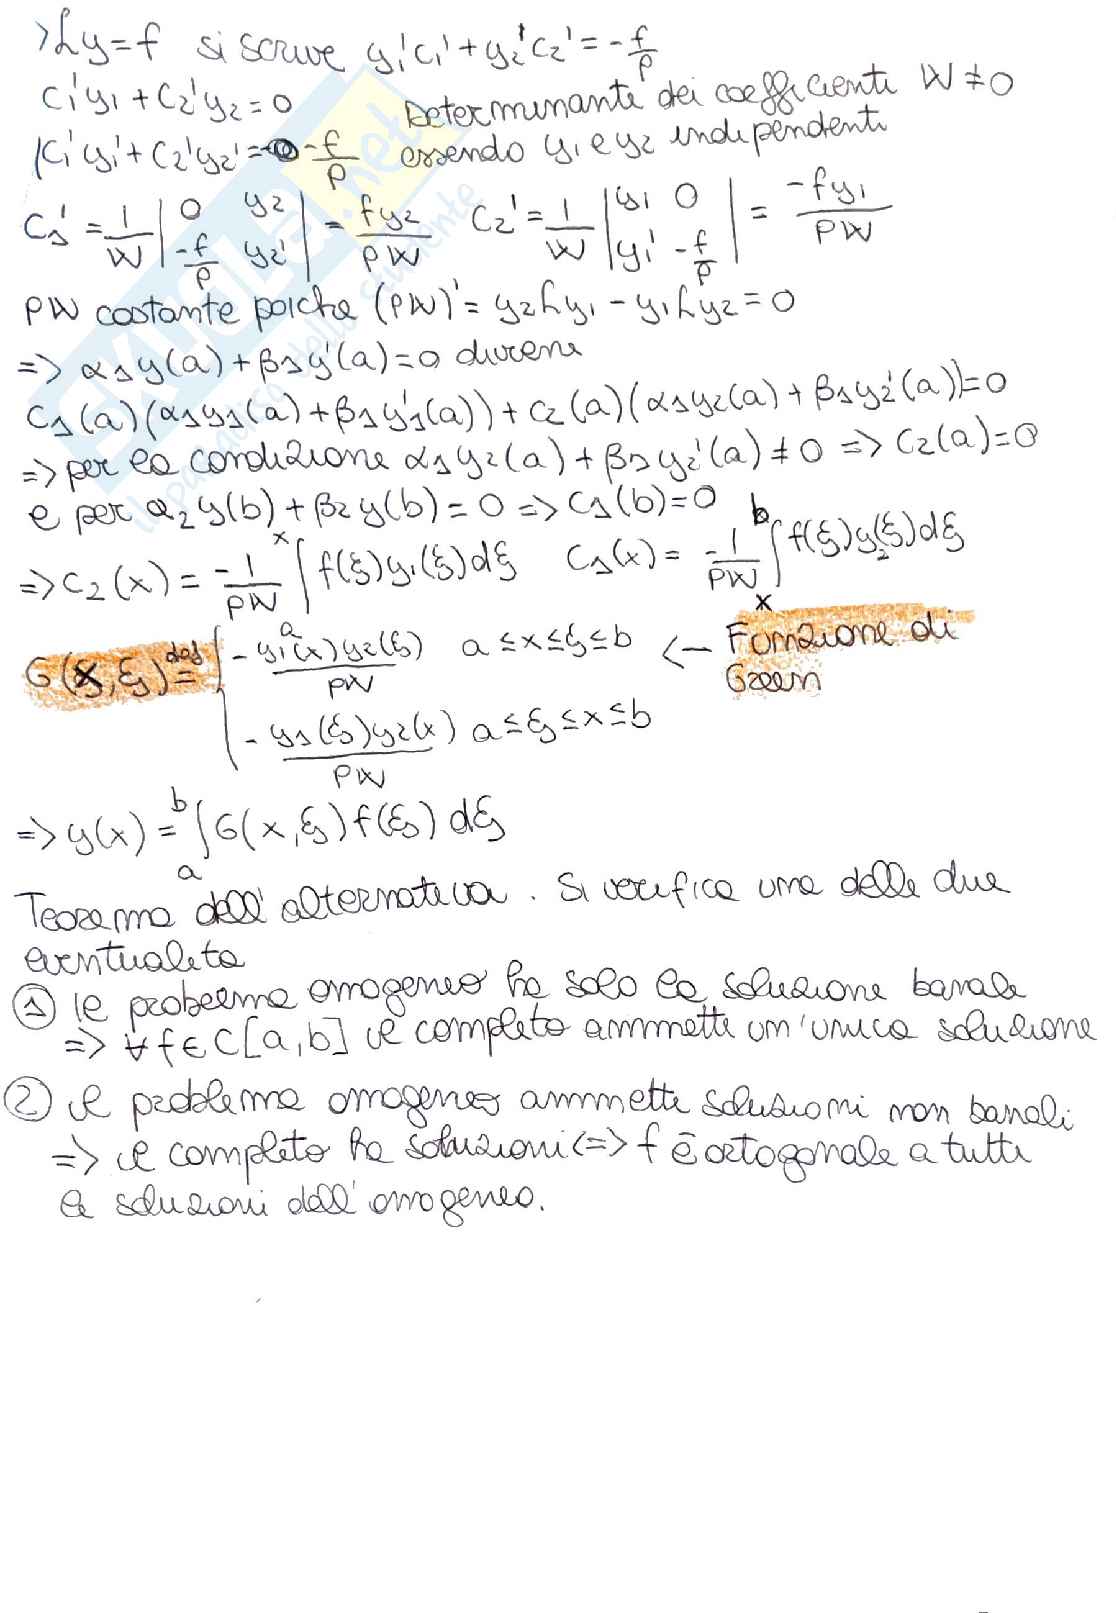 >Ly=f si scrive y₁'c₁'+y₂'c₂'=-f/p
c₁'y₁+c₂'y₂=0 Determinante dei coefficienti W≠0
c₁'y₁'+c₂'y₂'=-f/p essendo y₁ e y₂ indipendenti
C₁'=1/W |0 y₂; -f/p y₂'| = fy₂/PW C₂'=1/W |y₁ 0; y₁' -f/p| = -fy₁/PW
PW costante poiche (PW)'=y₂Ly₁-y₁Ly₂=0
=> α₁y(a)+β₁y'(a)=0 diviene
C₁(a)(α₁y₁(a)+β₁y₁'(a))+C₂(a)(α₁y₂(a)+β₁y₂'(a))=0
=> per la condizione α₁y₂(a)+β₁y₂'(a)≠0 => C₂(a)=0
e per α₂y(b)+β₂y(b)=0 => C₁(b)=0
=> C₂(x)=-1/PW ∫ₐˣ f(ξ)y₁(ξ)dξ C₁(x)=-1/PW ∫ₓᵇ f(ξ)y₂(ξ)dξ
G(x,ξ) def= { -y₁(x)y₂(ξ)/PW a≤x≤ξ≤b <- Funzione di
Green
-y₁(ξ)y₂(x)/PW a≤ξ≤x≤b
=> y(x)=∫ₐᵇ G(x,ξ)f(ξ)dξ
Teorema dell'alternativa. Si verifica una delle due
eventualita
① le problema omogeneo ha solo la soluzione banale
=> ∀f∈C[a,b] il completo ammette un'unica soluzione
② il problema omogeneo ammette soluzioni non banali
=> il completo ha soluzioni <=> f è ortogonale a tutte
le soluzioni dell'omogeneo.
SKUOLA.net
il paradiso dello studente